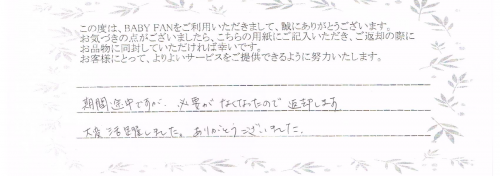 この度は、BABY FANをご利用いただきまして、誠にありがとうございます。
お気づきの点がございましたら、こちらの用紙にご記入いただき、ご返却の際に
お品物に同封していただければ幸いです。
お客様にとって、よりよいサービスをご提供できるように努力いたします。
期間途中ですが、必要がなくなったので返却します
大変活躍しました。ありがとうございました。